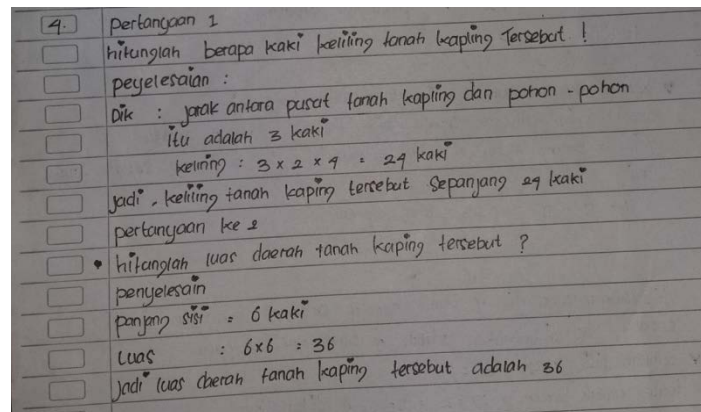 4. pertanyaan 1
hitunglah berapa kaki keliling tanah kapling Tersebut !
peyelesaian :
Dik : jarak antara pusat tanah kapling dan pohon - pohon
itu adalah 3 kaki
keliring : 3 x 2 x 4 = 24 kaki
jadi, keliling tanah kaping tersebut sepanjang 24 kaki
pertanyaan ke 2
• hitunglah luas daerah tanah kaping tersebut ?
penyelesain
panjang sisi = 6 kaki
luas : 6x6 = 36
jadi luas daerah tanah kaping tersebut adalah 36